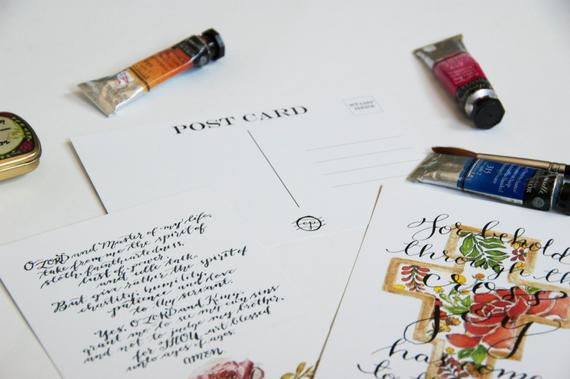 POST CARD
O LORD and Master of my life,
take from me the spirit of
sloth, faintheartedness,
lust of
But give rather the spirit of
chastity, humility,
patience, and love
to thy servant.
Yea, O LORD and King,
grant me to see my
and not to judge my brother,
for THOU art blessed
unto ages of ages.
amen
For behold
through the
cross
joy
has come
to
315